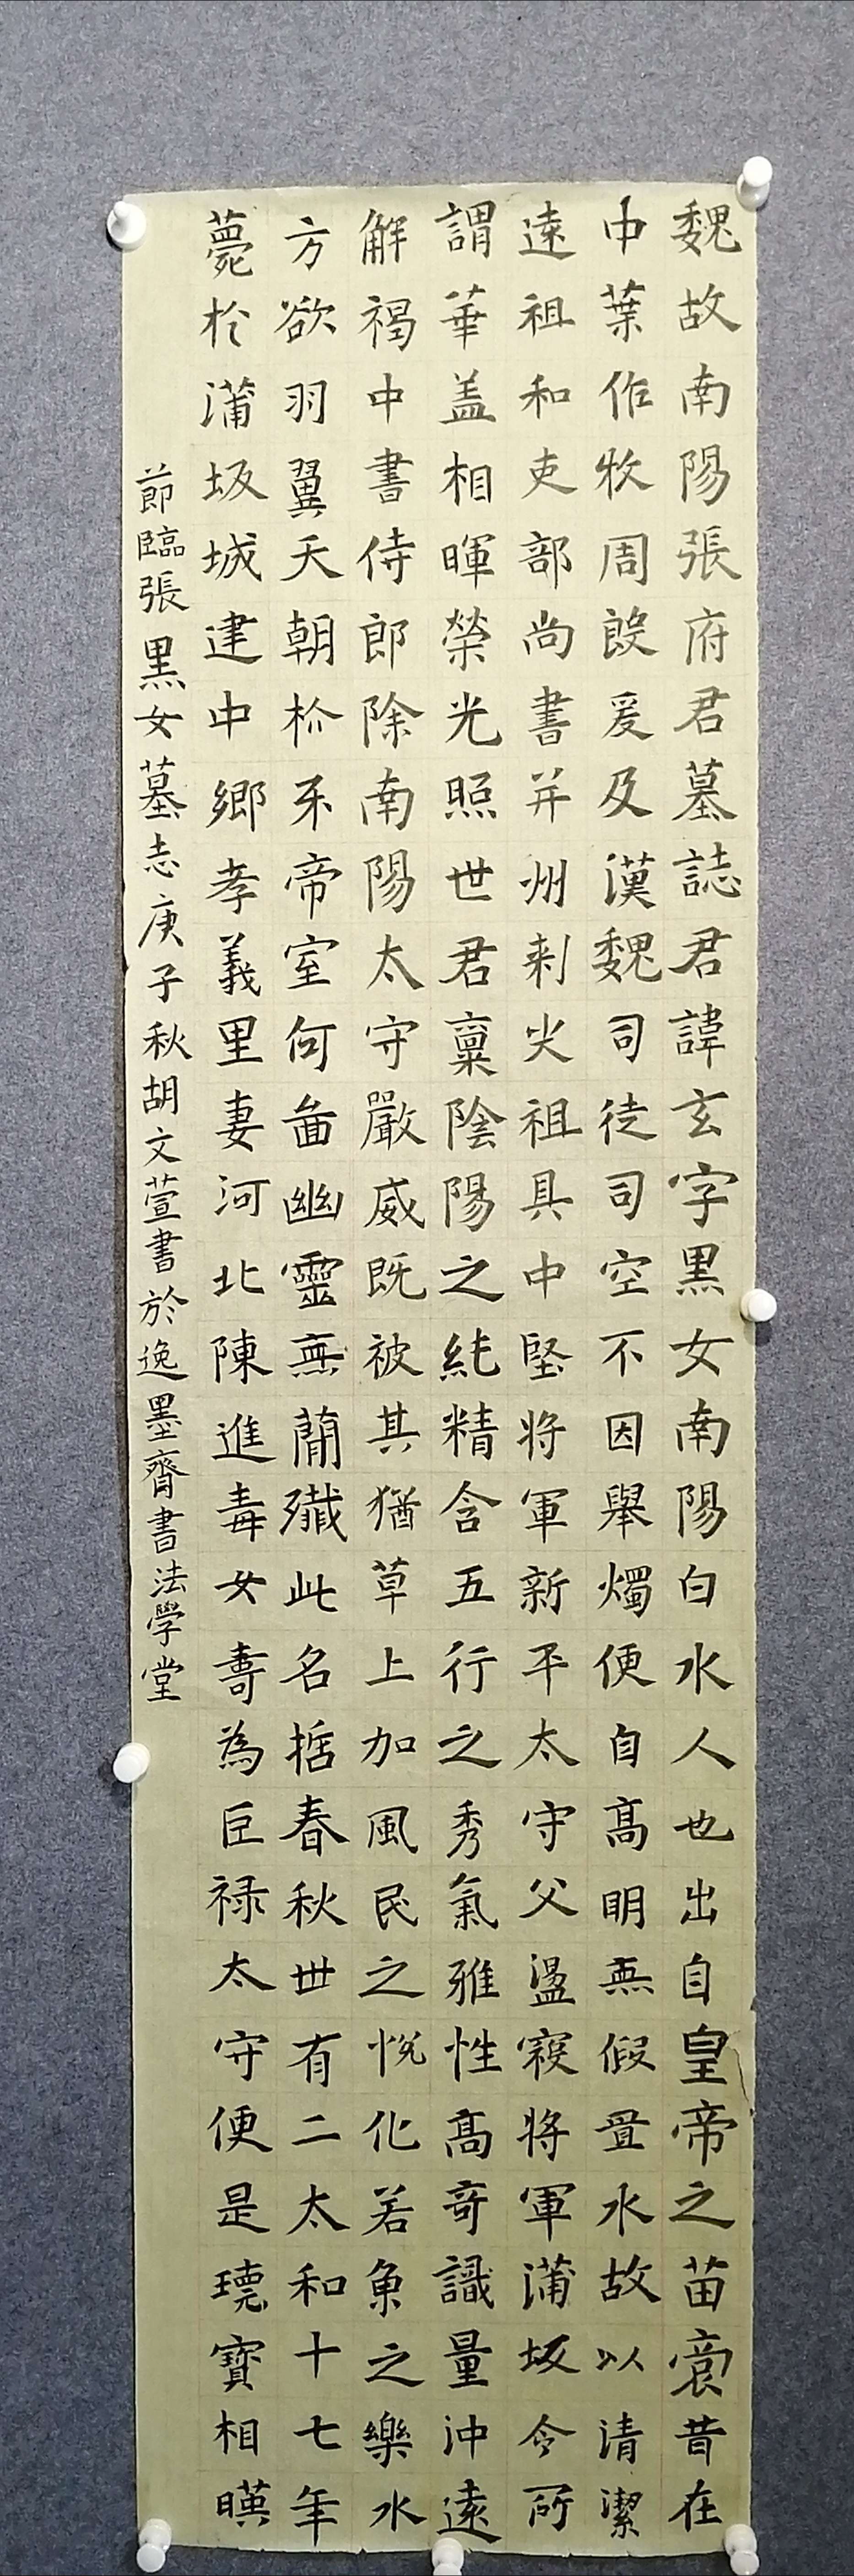 魏故南陽張府君墓誌君諱玄字黑女南陽白水人也出自皇帝之苗裔昔在
中葉作牧周殷爰及漢魏司徒司空不因舉燭便自高明無假置水故以清潔
遠祖和吏部尚書并州刺史祖具中堅將軍新平太守父盪寇將軍蒲坂令所
謂華蓋相暉榮光照世君稟陰陽之純精含五行之秀氣雅性高奇識量沖遠
解褐中書侍郎除南陽太守嚴威既被其猶草上加風民之悅化若魚之樂水
方欲羽翼天朝枌乐帝室何啚幽靈無蕳殲此名喆春秋卅有二太和十七年
薨於蒲坂城建中鄉孝義里妻河北陳進壽女壽為巨祿太守便是瓌寶相暎
節臨張黑女墓志庚子秋胡文萱書於逸墨齋書法學堂